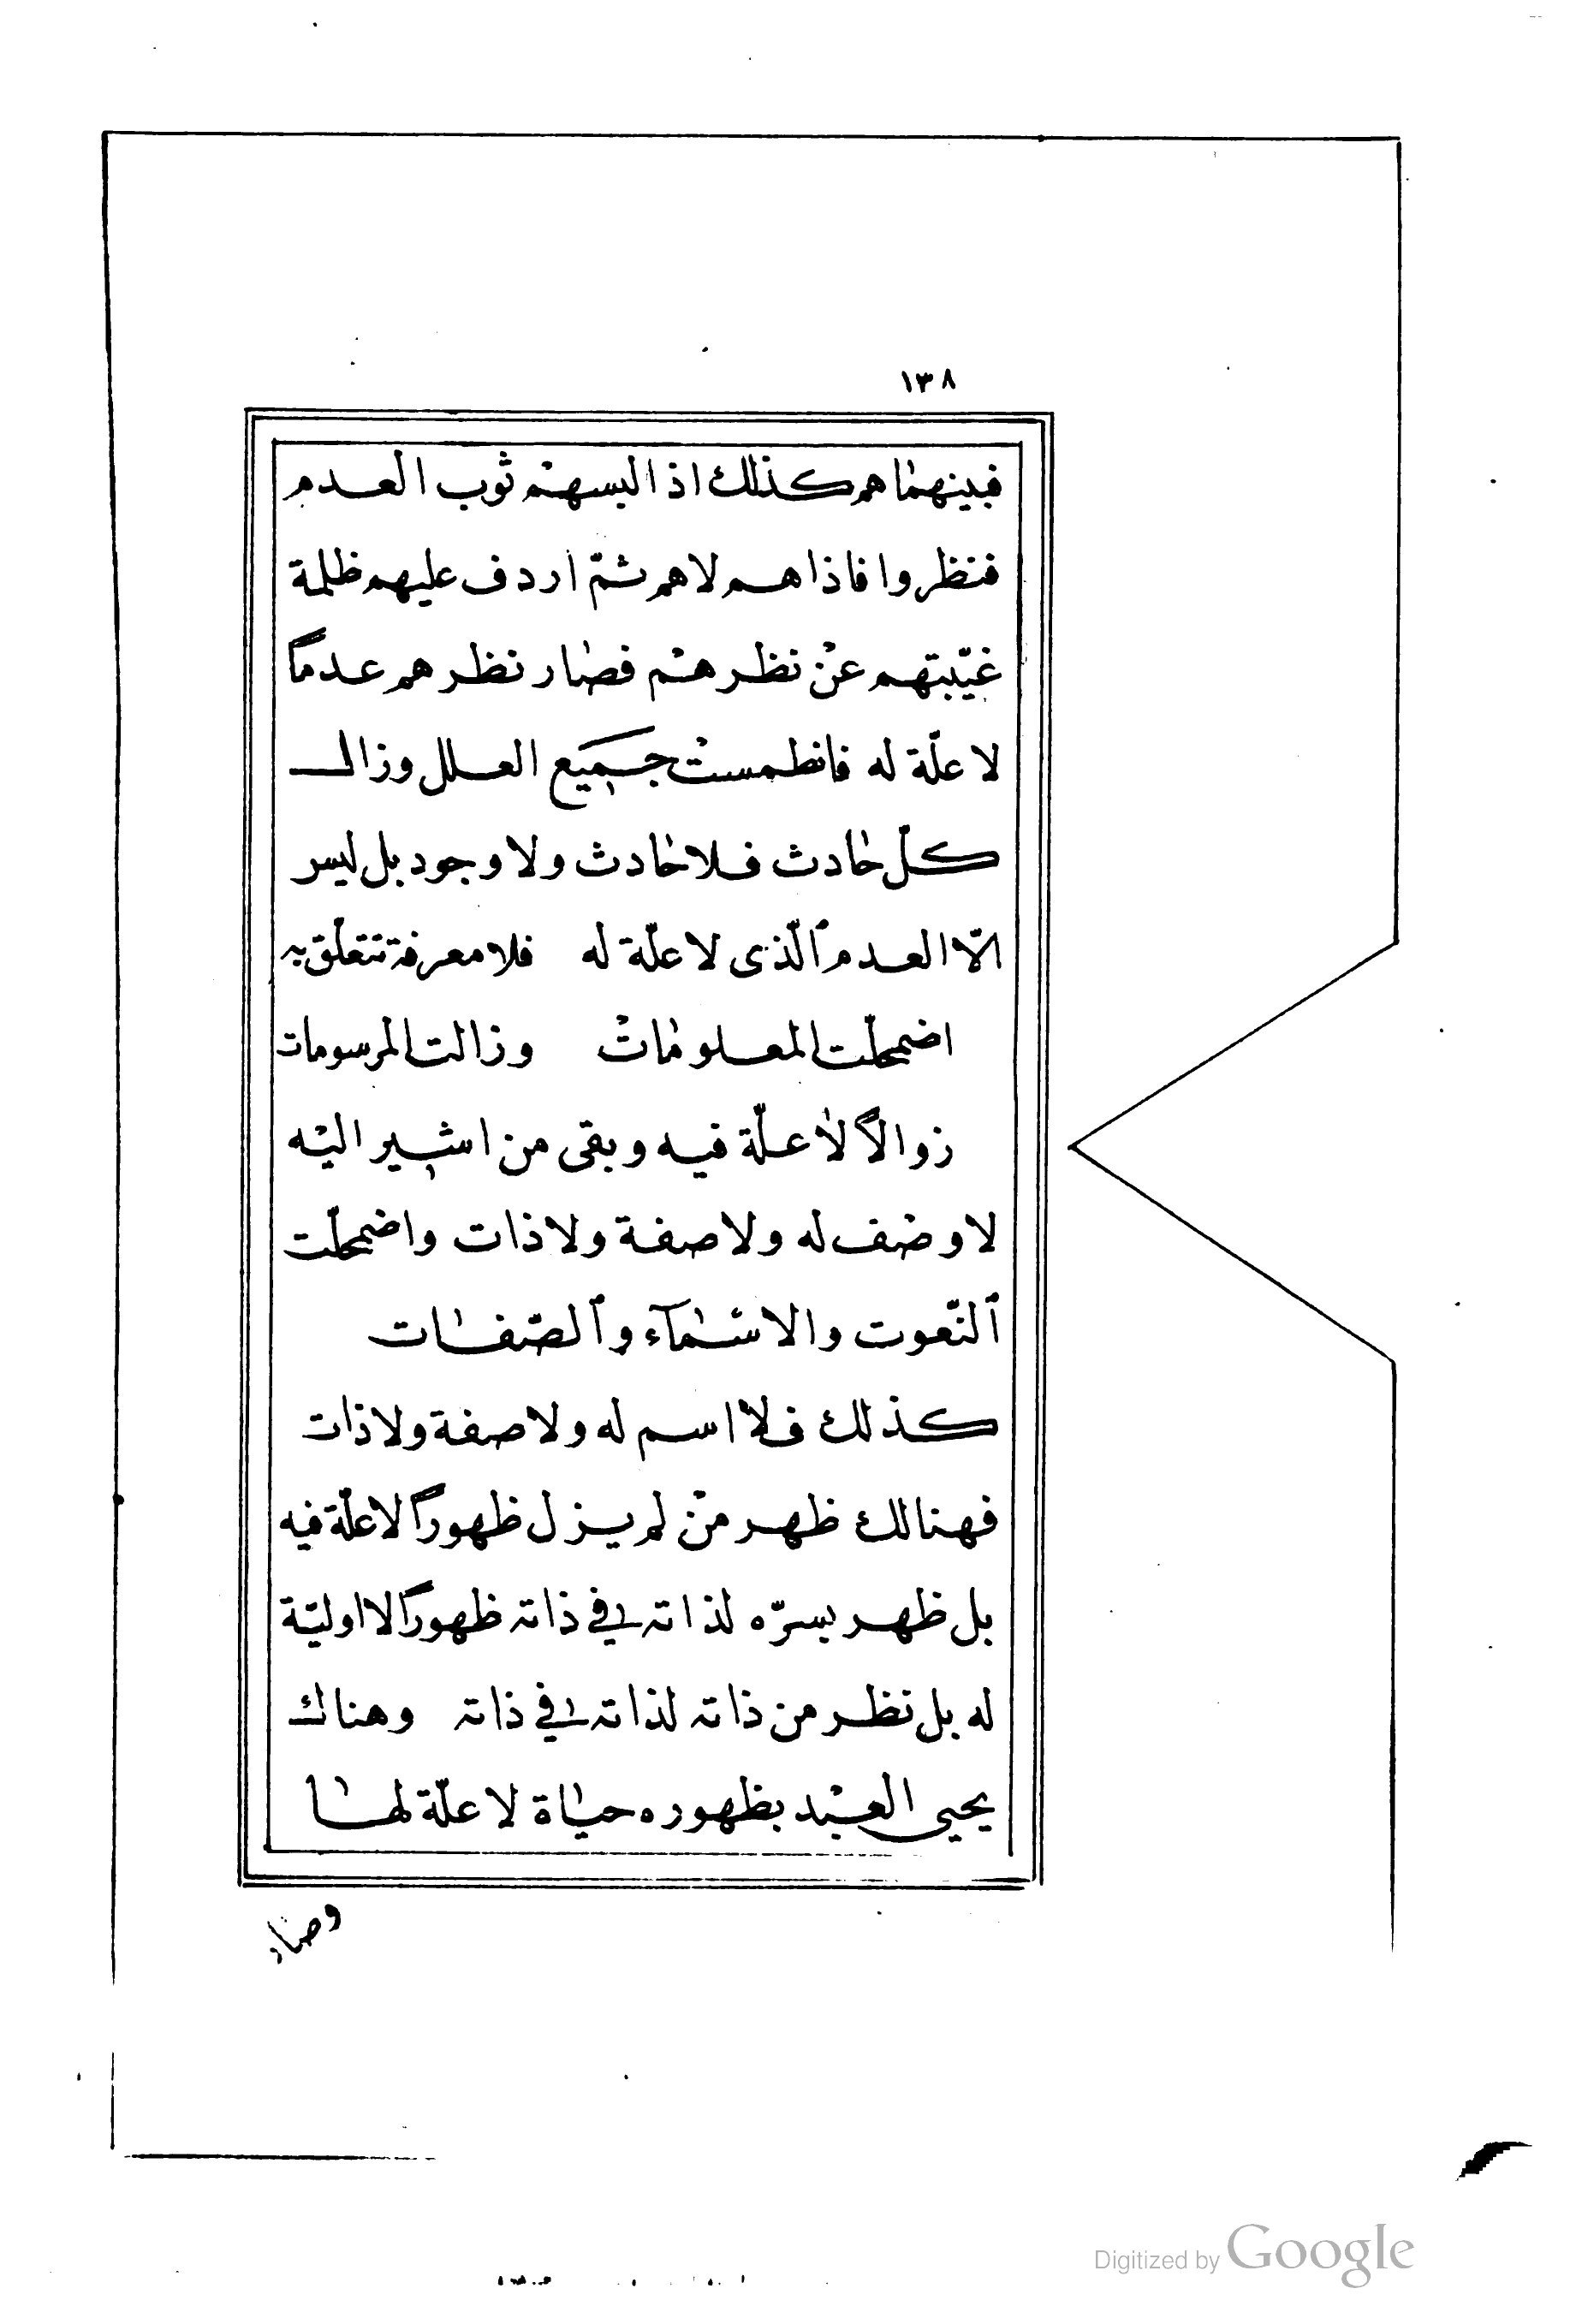 ١٣٨
فبينهما هم كذلك اذ البسهم ثوب العدم
فنظروا فاذا هم لا هم ثمّ اردف عليهم ظلمة
غيّبتهم عن نظرهم فصار نظرهم عدماً
لا علّة له فانطمست جميع العلل وزال
كلّ حادث فلا حادث ولا وجود بل ليس
الّا العدم ٱلّذى لا علّة له فلا معرفة تتعلّق به
اضمحلّت المعلومات وزالت المرسومات
زوالاً لا علّة فيه وبقى من اشير اليه
لا وصف له ولا صفة ولا ذات واضمحلّت
ٱلنّعوت والاسمآء وٱلصّفات
كذلك فلا اسم له ولا صفة ولا ذات
فهنالك ظهر من لم يزل ظهوراً لا علّة فيه
بل ظهر بسرّه لذاته في ذاته ظهوراً لا اوليّة
له بل نظر من ذاته لذاته في ذاته وهناك
يحيى العبد بظهوره حياة لا علّة لها
وصار
Digitized by Google